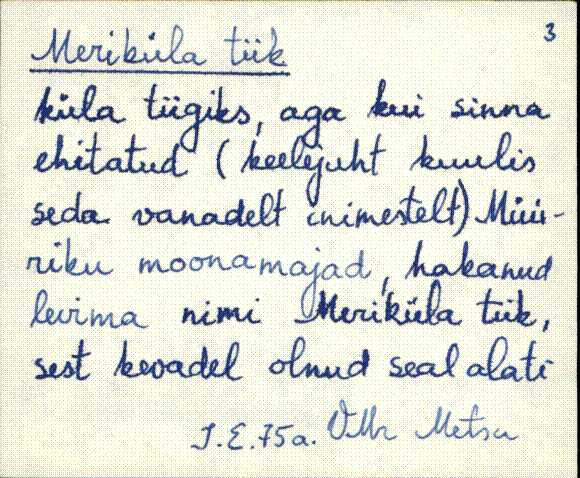 3
Meriküla tiik
küla tiigiks, aga kui sinna
ehitatud (keelejuht kuulis
seda vanadelt inimestelt) Müü-
riku moonamajad, hakanud
levima nimi Meriküla tiik,
sest kevadel olnud seal alati
J.E. 75a. VMr Metsa